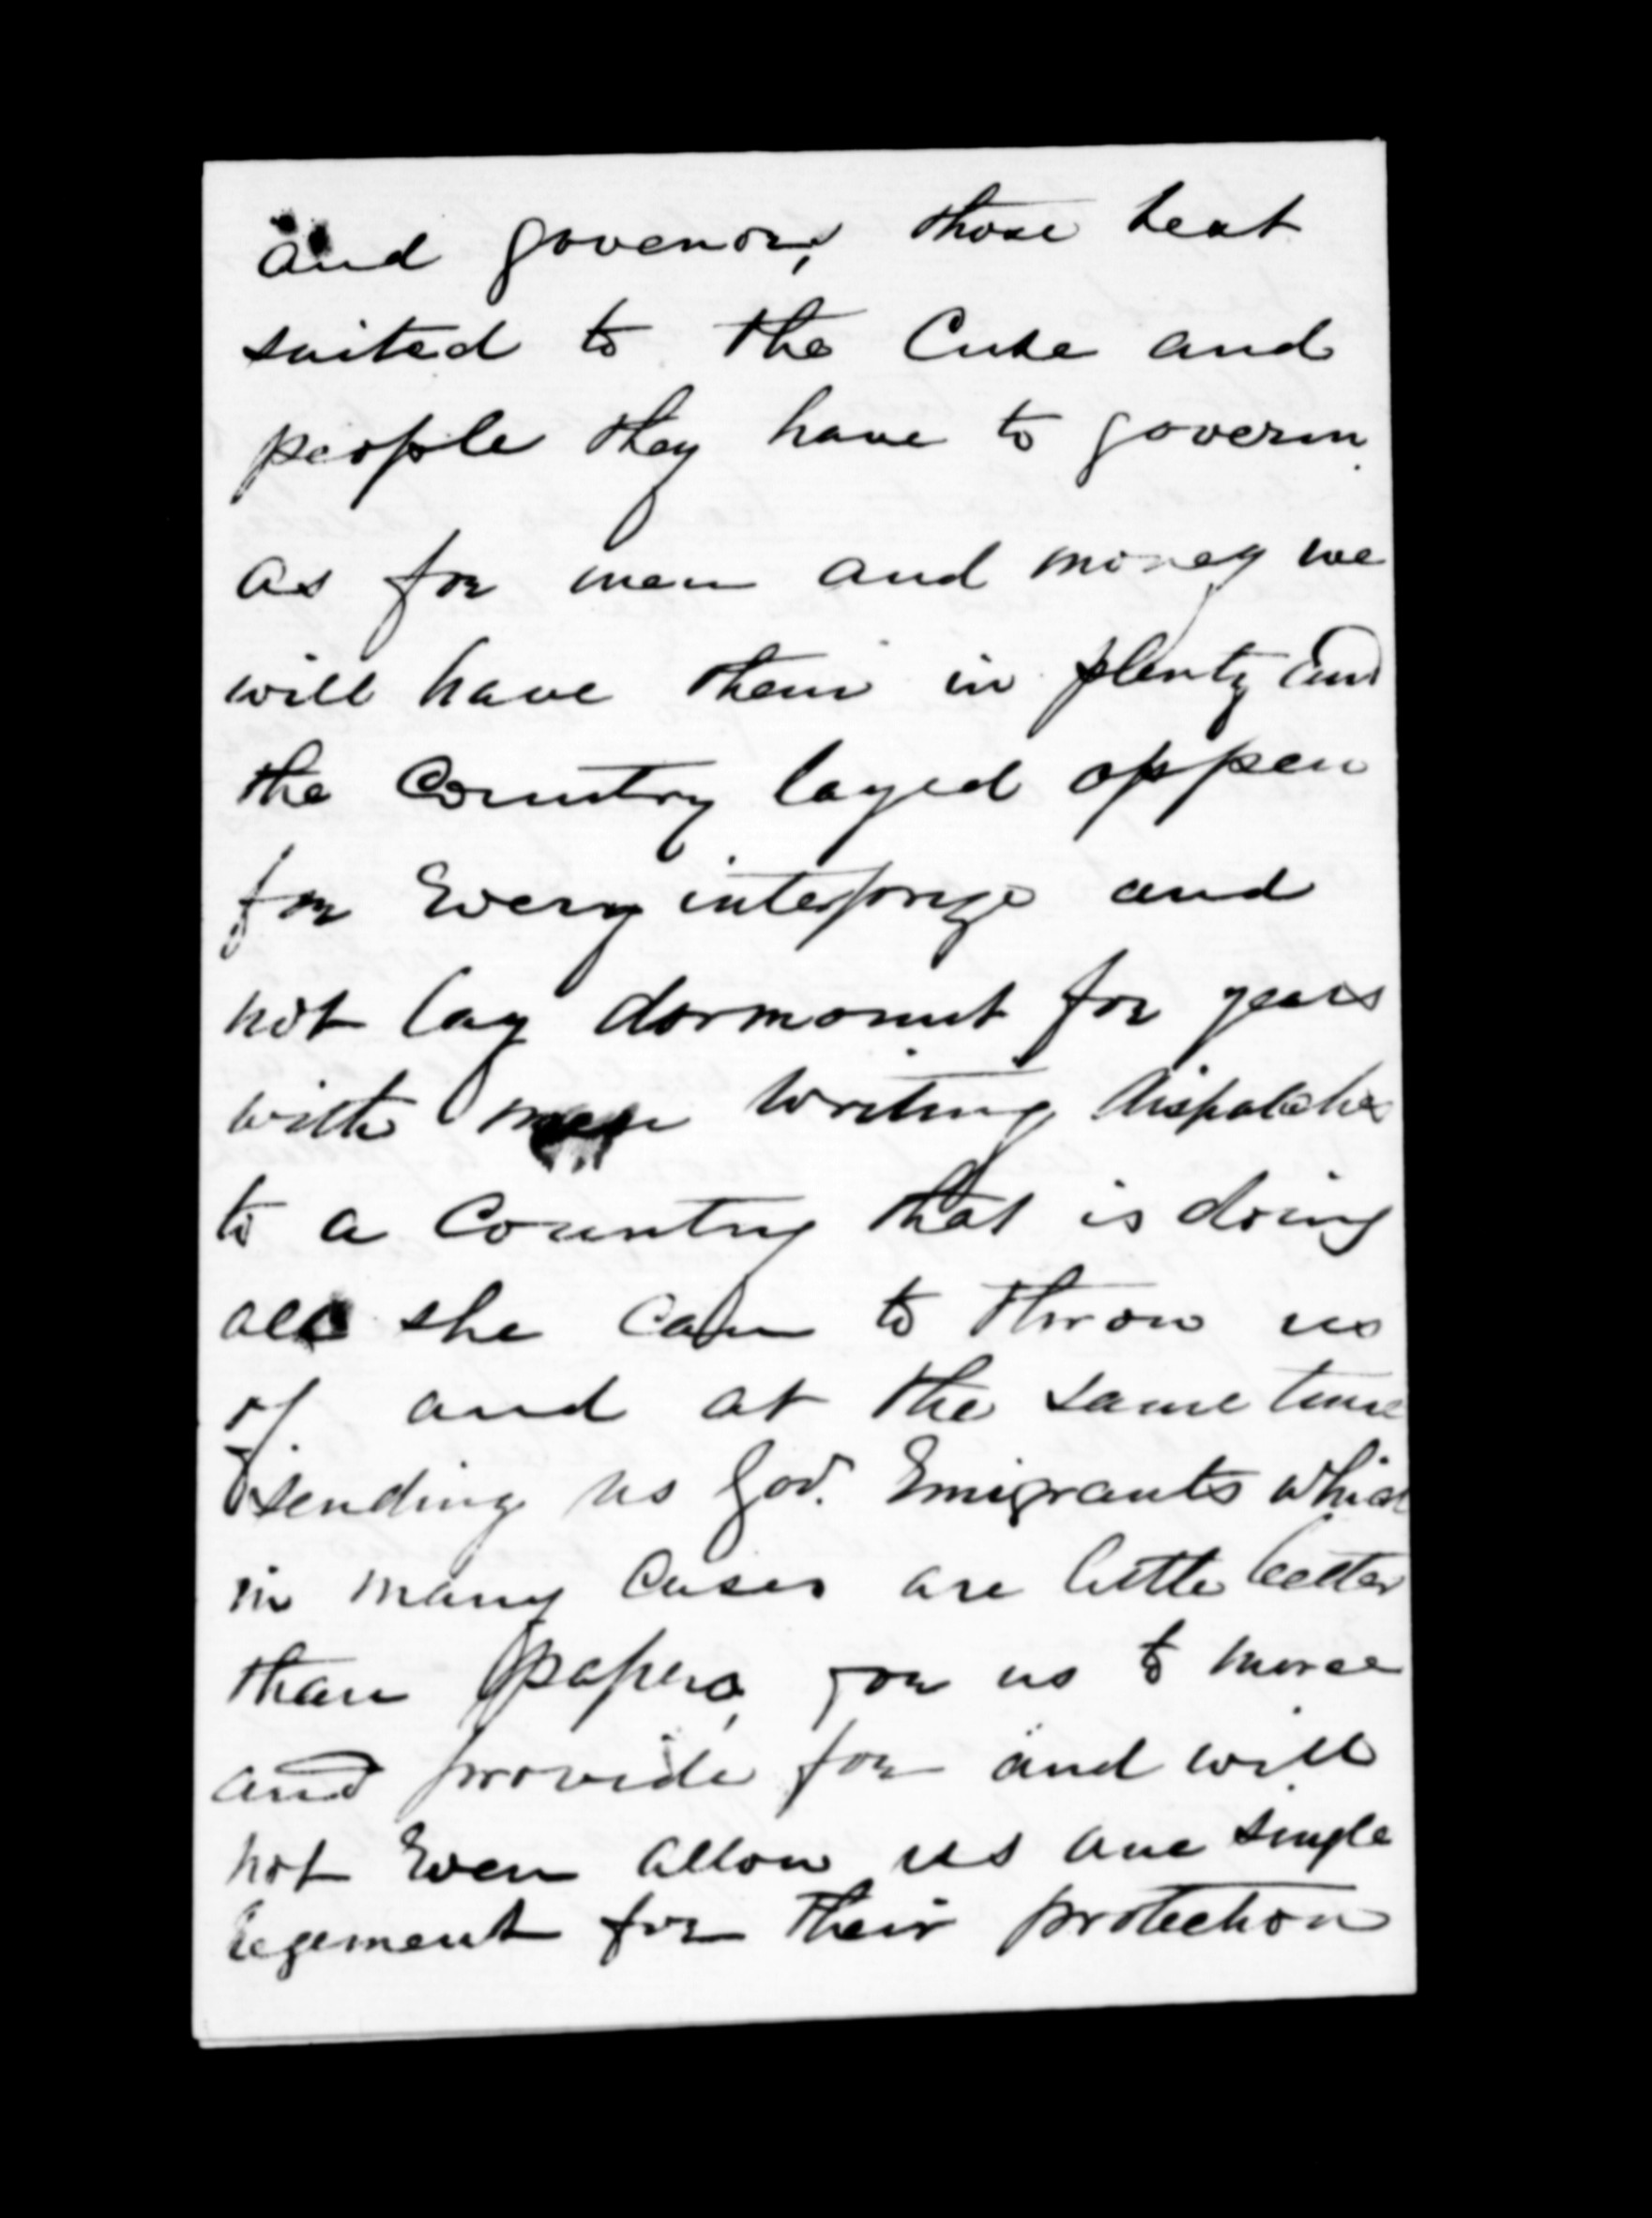 and govenors, those best
suited to the Case and
people they have to govern
as for men and money we
will have them in plenty and
the Country layed oppen
for Every interprize and
not lay dormount for years
with men writing dispatches
to a Country that is doing
all she can to throw us
of and at the same time
sending us Gov. Emigrants which
in many Cases are little better
than papers, for us to
and provide for and will
not Even allow us one single
regement for their protection